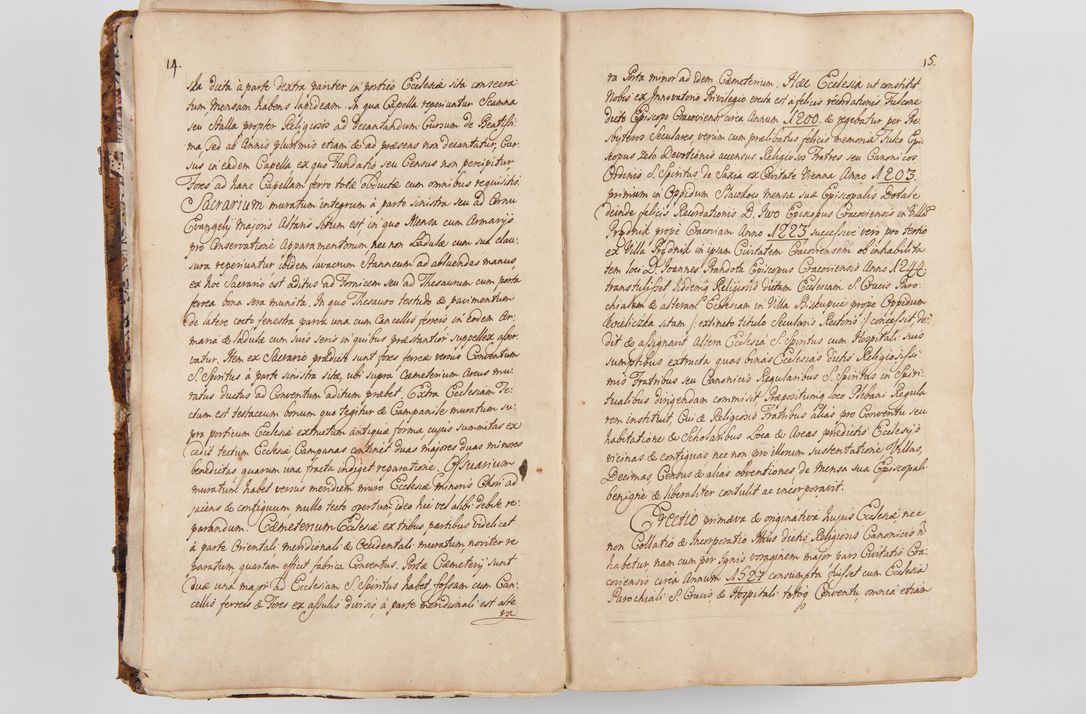 14.
sta dicta à parte dextra pariter in portici Ecclesiæ sita consecra
tum Mensam habens lapideam. In qua Capella reperiuntur Scamna
seu Stalla propter Religiosos ad decantandum Cursum de Beatissi:
ma sed ab Annis plurimis etiam & ad præsens non decantatur, Cur:
sus in eadem Capella, ex quo Fundatio seu Census non percipitur
Fores ad hanc Capellam ferro forte obductæ cum omnibus requisitis.
Sacrarium muratum integrum à parte sinistra seu à Cornu
Evangely Majoris Altaris situm est in quo Mensa cum Armarijs
pro Conservatione Apparamentorum nec non Ladulæ cum sua clau:
sura reperiuntur, ibidem lavacrum Stanneum ad abluendas manus,
ex hoc Sacrario est aditus ad Fornicem seu ad Thesaurum cum porta
ferrea bona sera munita. In quo Thesauro testudo & pavimentum
de latere cocto fenestra parva una cum Cancellis ferreis in eodem Ar:
maria & ladulæ cum suis seris in quibus præstantior suppellex asser
vatur. Item ex Sacrario prædicto sunt fores ferreæ versus Conventum
S. Spiritus à parte sinistra sitæ, ubi supra Cæmeterium Arcus mu:
ratus ductus ad Conventum aditum præbet. Extra Ecclesiam Te:
ctum est testaceum bonum quo tegitur & Campanile muratum su:
pra porticum Ecclesiæ extructum antiquæ formæ cujus summitas ex
cedit tectum Ecclesiæ Campanas continet duas majores duas minores
benedictas quarum una fracta indiget reparatione. Ossuarium
muratum habet versus meridiem muro Ecclesiæ minoris Chori ad
jacens & contiguum nullo tecto opertum ideo hic vel alibi debite re:
parandum. Cæmeterium Eclesiæ ex tribus partibus videlicet
à parte Orientali, meridionali & Occidentali muratum noviter re
paratum quartam efficit fabrica Conventus. Portæ Cæmeterij sunt
duæ una major ad Ecclesiam S. Spiritus habet fossam cum Can:
cellis ferreis & Fores ex assulis divisis, à parte meridionali est alte
ra

15.
ra Porta minor ad idem Cæmeterium. Hæc Ecclesia ut constitit
Nobis ex Innovatorio Privilegio erecta est à felicis recordationis Fulcone
dicto Episcopo Cracoviensi circa Annum 1200. & regebatur per Pre:
sbyteros Seculares, verum cum prælibatus felicis memoriæ Fulco Epi:
scopus zelo Devotionis accensus Religiosos Fratres seu Canonicos
Ordinis S. Spiritus de Saxia ex Civitate Vienna Anno 1203.
primum in Oppidum Slawkow mensæ suæ Episcopalis Dotasse
deinde felicis Recordationis D. Ivo Episcopus Cracoviensis in Villam
Prądnik prope Cracoviam Anno 1223 successive vero pro tertio
ex Villa Prądnik in ipsam Civitatem Cracoviensem ob inhabilita
tem loci D. Joannes Prandota Episcopus Cracoviensis Anno 1244
transtulisset iisdemq Religiosis dictam Ecclesiam S. Crucis Paro:
chialem & alteram Ecclesiam in Villa Biskupice prope Oppidum
Wieliczka sitam /: extincto titulo Secularis Rectoris :/ concessit de:
dit & assignavit Altera Ecclesia S. Spiritus cum Hospitali suis
sumptibus extructa quas binas Ecclesias dictis Religiosissi:
mis Fratribus seu Canonicis Regularibus S. Spiritus in Spiri:
tualibus dirigendam commisit Præpositumq loco Plebani Regula
rem instituit, Cui & Religiosis Fratribus alias pro Conventu seu
habitatione & Scholaribus Loca & Areas prædictis Ecclesijs
vicinas & contiguas nec non pro illorum sustentatione Villas,
Decimas Census & alias obventiones de Mensa sua Episcopali
benigne & liberaliter contulit ac incorporavit.
Erectio primæva & originativa hujus Ecclesiæ nec
non Collatio & Incorporatio Illius dictis Religiosis Canonicis ñ
habetur nam cum per Ignis voraginem major pars Civitatis Cra:
coviensis circa Annum 1527 consumpta fuisset cum Ecclesia
Parochiali S. Crucis, & Hospitali totoq Conventu, omnia etiam